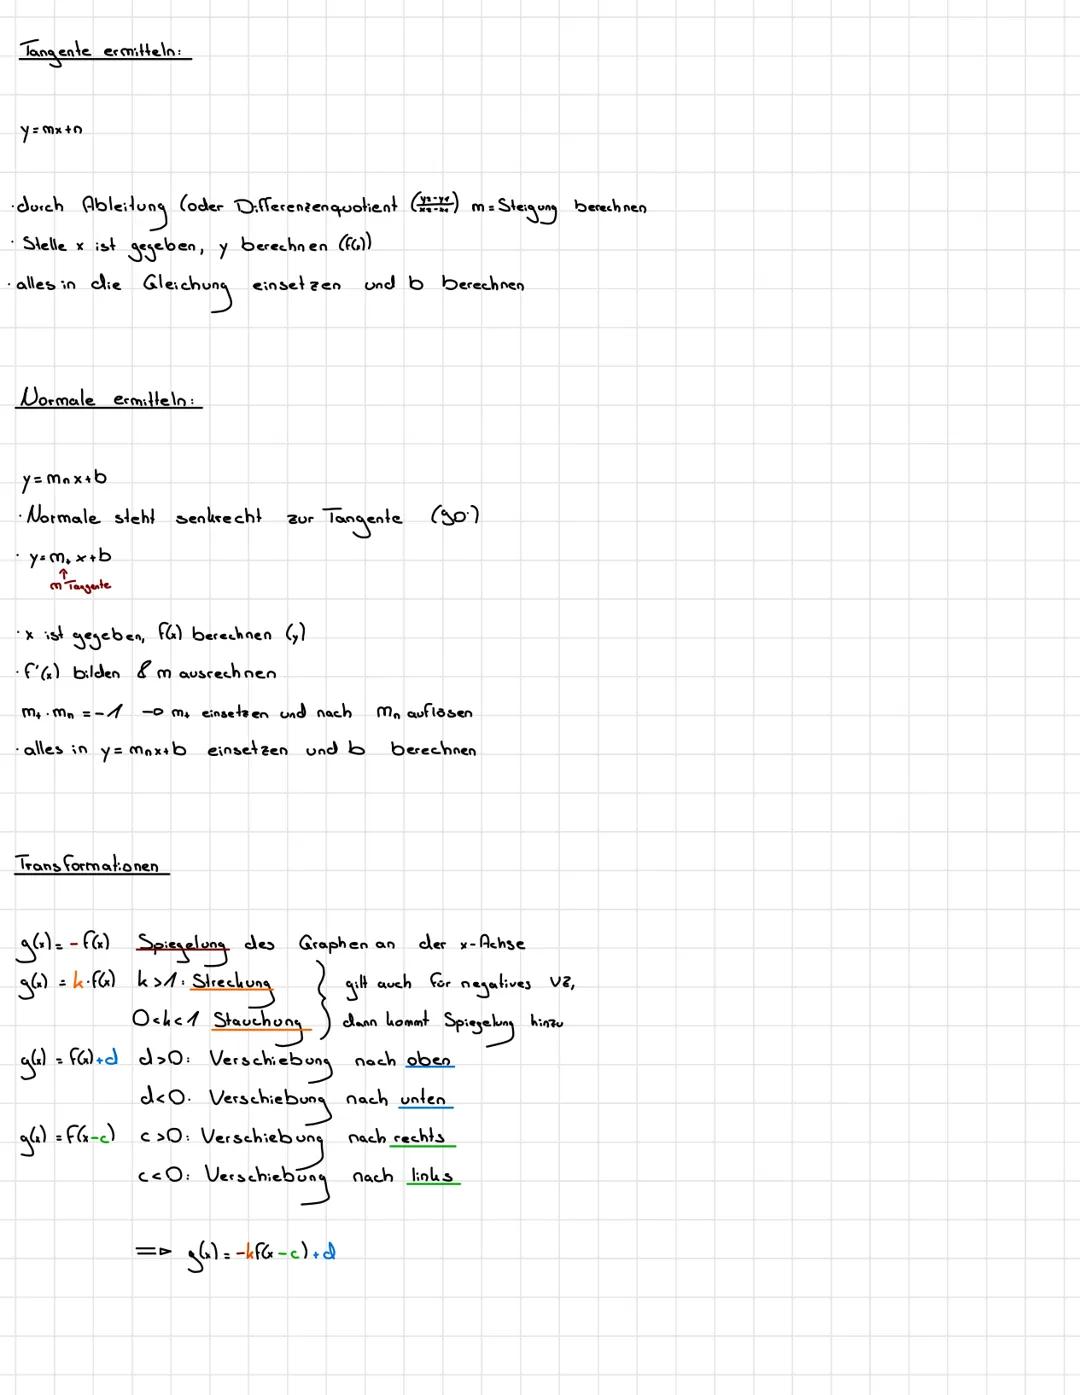 Tangente ermitteln:
y=mx+n
·durch Ableitung (oder Differenzenquotient (y2-y1/x2-x1) m=Steigung berechnen
· Stelle x ist gegeben, y berechnen (f(x))
·alles in die Gleichung einsetzen und b berechnen
Normale ermitteln:
y=mnx+b
·Normale steht senkrecht zur Tangente (90°)
· y=mt x+b
↑
m Tangente
·x ist gegeben, f(x) berechnen (y)
·f'(x) bilden & m ausrechnen
mt·mn=-1 → mt einsetzen und nach mn auflösen
·alles in y=mnx+b einsetzen und b berechnen
Transformationen
g(x)=-f(x) Spiegelung des Graphen an der x-Achse
g(x)=k·f(x) k>1: Streckung } gilt auch für negatives VZ,
0<k<1 Stauchung } dann kommt Spiegelung hinzu
g(x)=f(x)+d d>0: Verschiebung nach oben
d<0. Verschiebung nach unten
g(x)=f(x-c) c>0: Verschiebung nach rechts
c<0: Verschiebung nach links
⇒ g(x)=-kf(x-c)+d